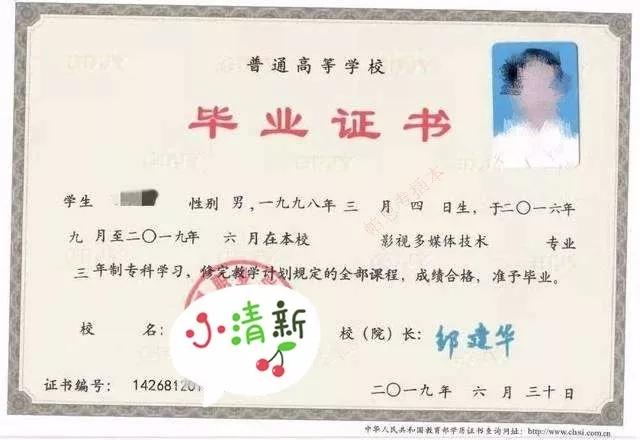 普通高等学校
毕业证书
学生 性别 男,一九九八年 三 月 四 日生,于二〇一六年
九 月至二〇一九年 六 月在本校 影视多媒体技术 专业
三 年制专科学习,修完教学计划规定的全部课程,成绩合格,准予毕业。
校 名: 校(院)长:邹建华
小清新
证书编号: 14268120
二〇一九年 六 月 三十 日
中华人民共和国教育部学历证书查询网址:http://www.chsi.com.cn